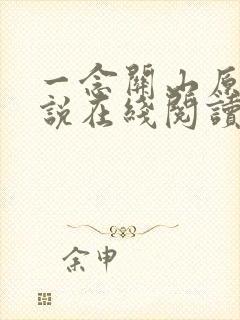 一念關山原
說在綫閱讀
余申